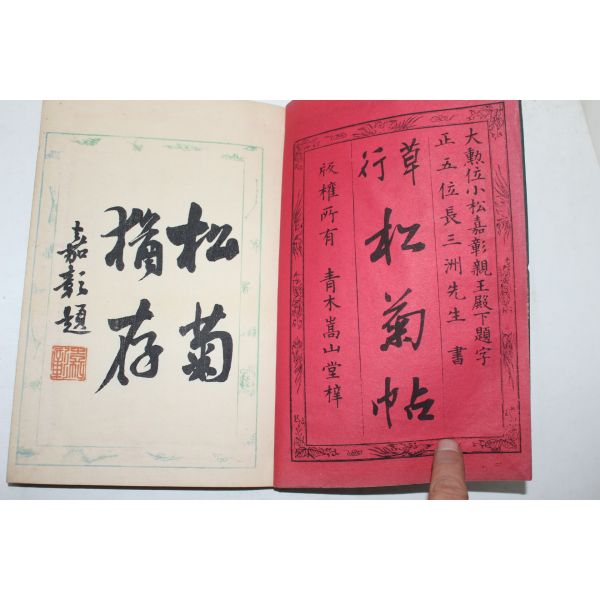 大勲位小松嘉彰親王殿下題字
正五位長三洲先生書
草行
松菊帖
版權所有 青木嵩山堂梓
松菊
猶存
嘉彰題